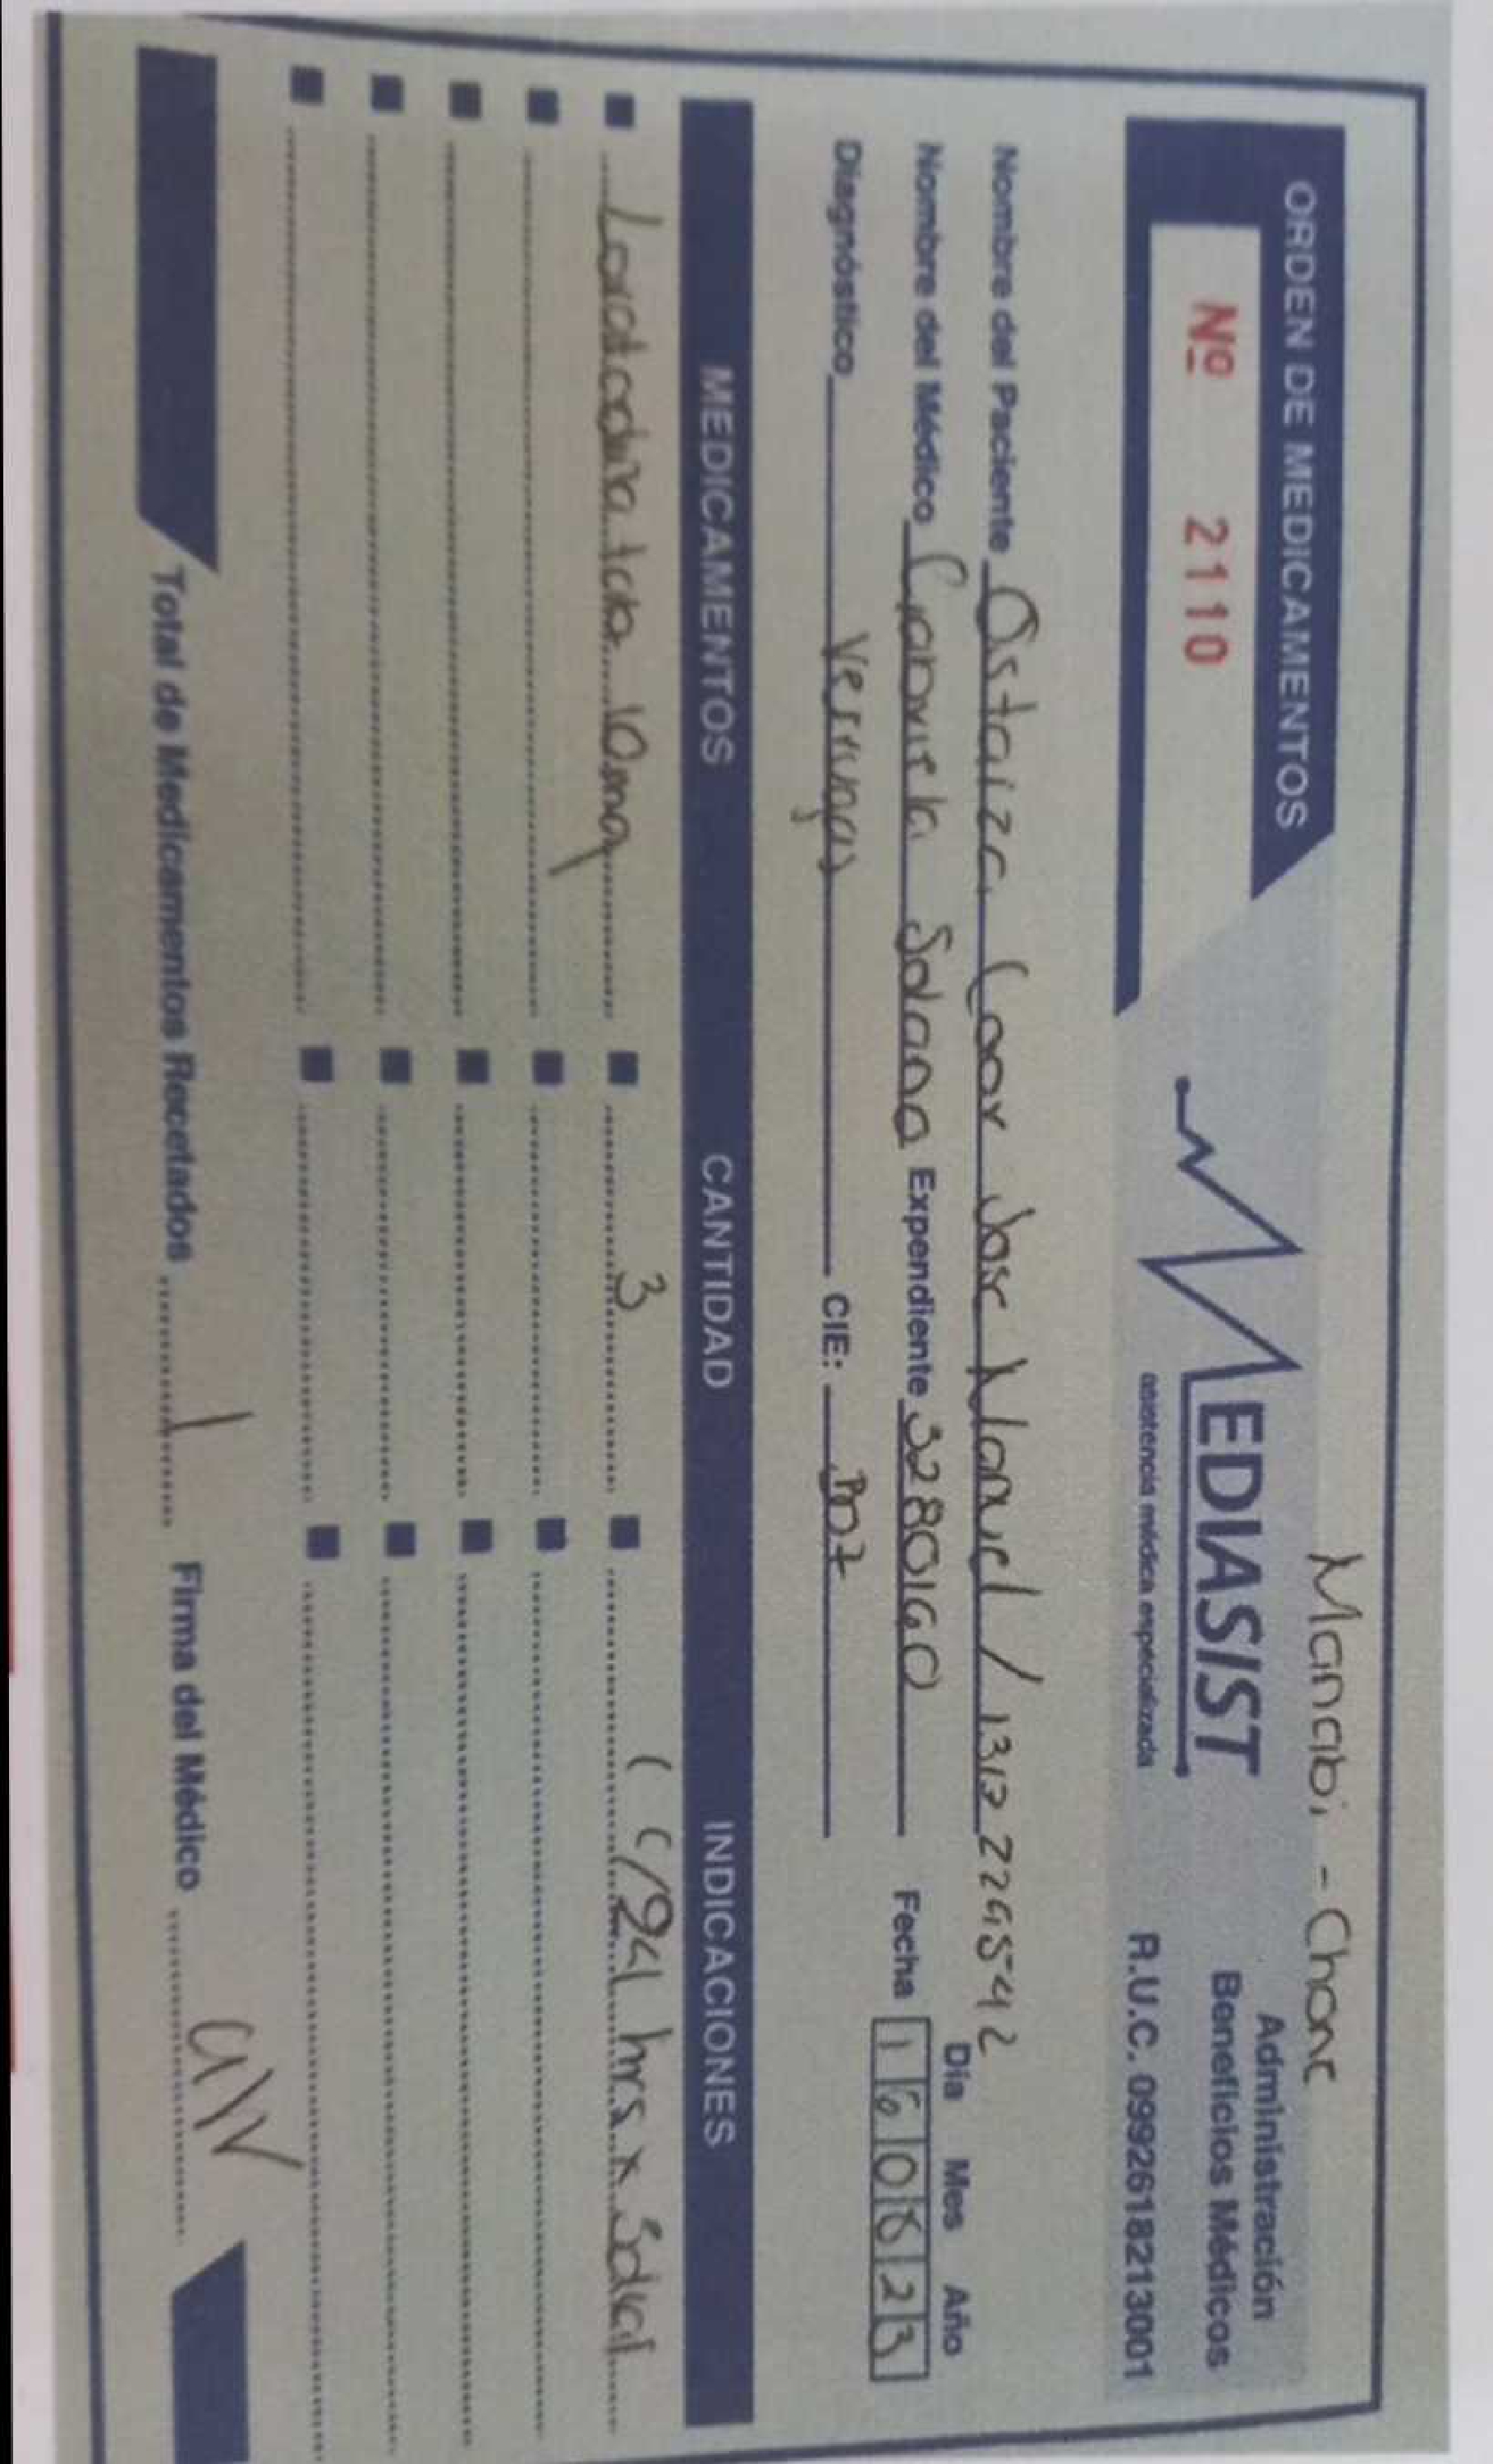 Manabi - Chone
ORDEN DE MEDICAMENTOS
Nº 2110
MEDIASIST
asistencia médica especializada
Administración
Beneficios Médicos
R.U.C. 0992618213001
Nombre del Paciente Ostaiza Loor Jose Manuel /
Nombre del Médico Gabriela Solano Expendiente 3280160 Fecha
Día Mes Año
16 08 23
Diagnóstico Verrugas CIE: B07
MEDICAMENTOS CANTIDAD INDICACIONES
10mg 3 c/24 hrs x 3dias
Total de Medicamentos Recetados 1 Firma del Médico